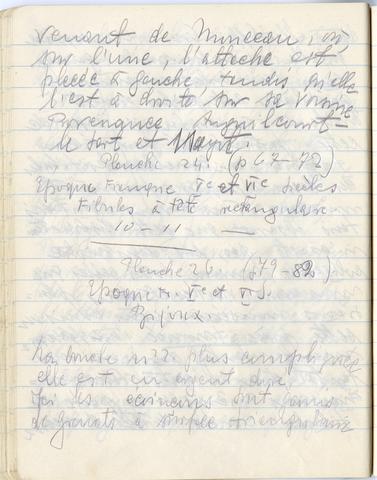 venant de Monceau, où,
sur l'une, l'attache est
placée à gauche, tandis qu'elle
l'est à droite sur sa voisine
Anguilcourt-
le Sart et
Planche 24. (p 67-72)
Epoque Franque Ve et VIe siècles
Fibules à tête rectangulaire
10-11 —
Planche 26. (p79-82)
Epoque F. Ve et VI S.
Bijoux.
La boucle n:22. plus compliquée
elle est en argent doré,
Ici les sont
de grenats à simple